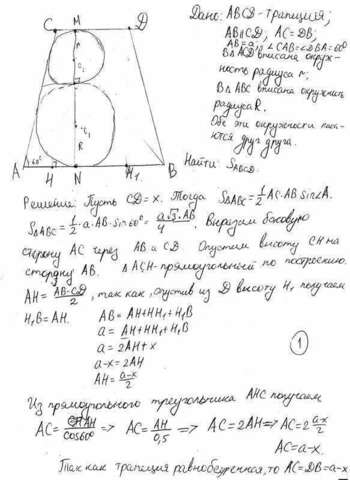 C M D
r
O₂
O₁
R
60°
A H N H₁ B
Дано: ABCD-трапиция;
AB∥CD; AC=DB;
AB=a; ∠CAB=∠DBA=60°
В △ вписана окруж-
ность радиуса r;
В △ABC вписана окружность
радиуса R.
Обе эти окружности каса-
ются друг друга.
Найти: S_ABCD.
Решение: Пусть CD=x. Тогда S△ABC=1/2 AC·AB·sin∠A.
S△ABC=1/2·a·AB·sin60°=a√3·AB/4. Выразим боковую
сторону AC через AB и CD. Опустим высоту CH на
сторону AB. △ACH-прямоугольный по построению.
AH=AB-CD/2, так как, опустив из D высоту H₁ получаем
H₁B=AH. AB=AH+HH₁+H₁B
a=AH+HH₁+H₁B
a=2AH+x
a-x=2AH
AH=a-x/2
1
Из прямоугольного треугольника AHC получаем
AC=AH/cos60° ⇒ AC=AH/0,5 ⇒ AC=2AH ⇒ AC=2 a-x/2
AC=a-x.
Так как трапеция равнобедренная, то AC=DB=a-x